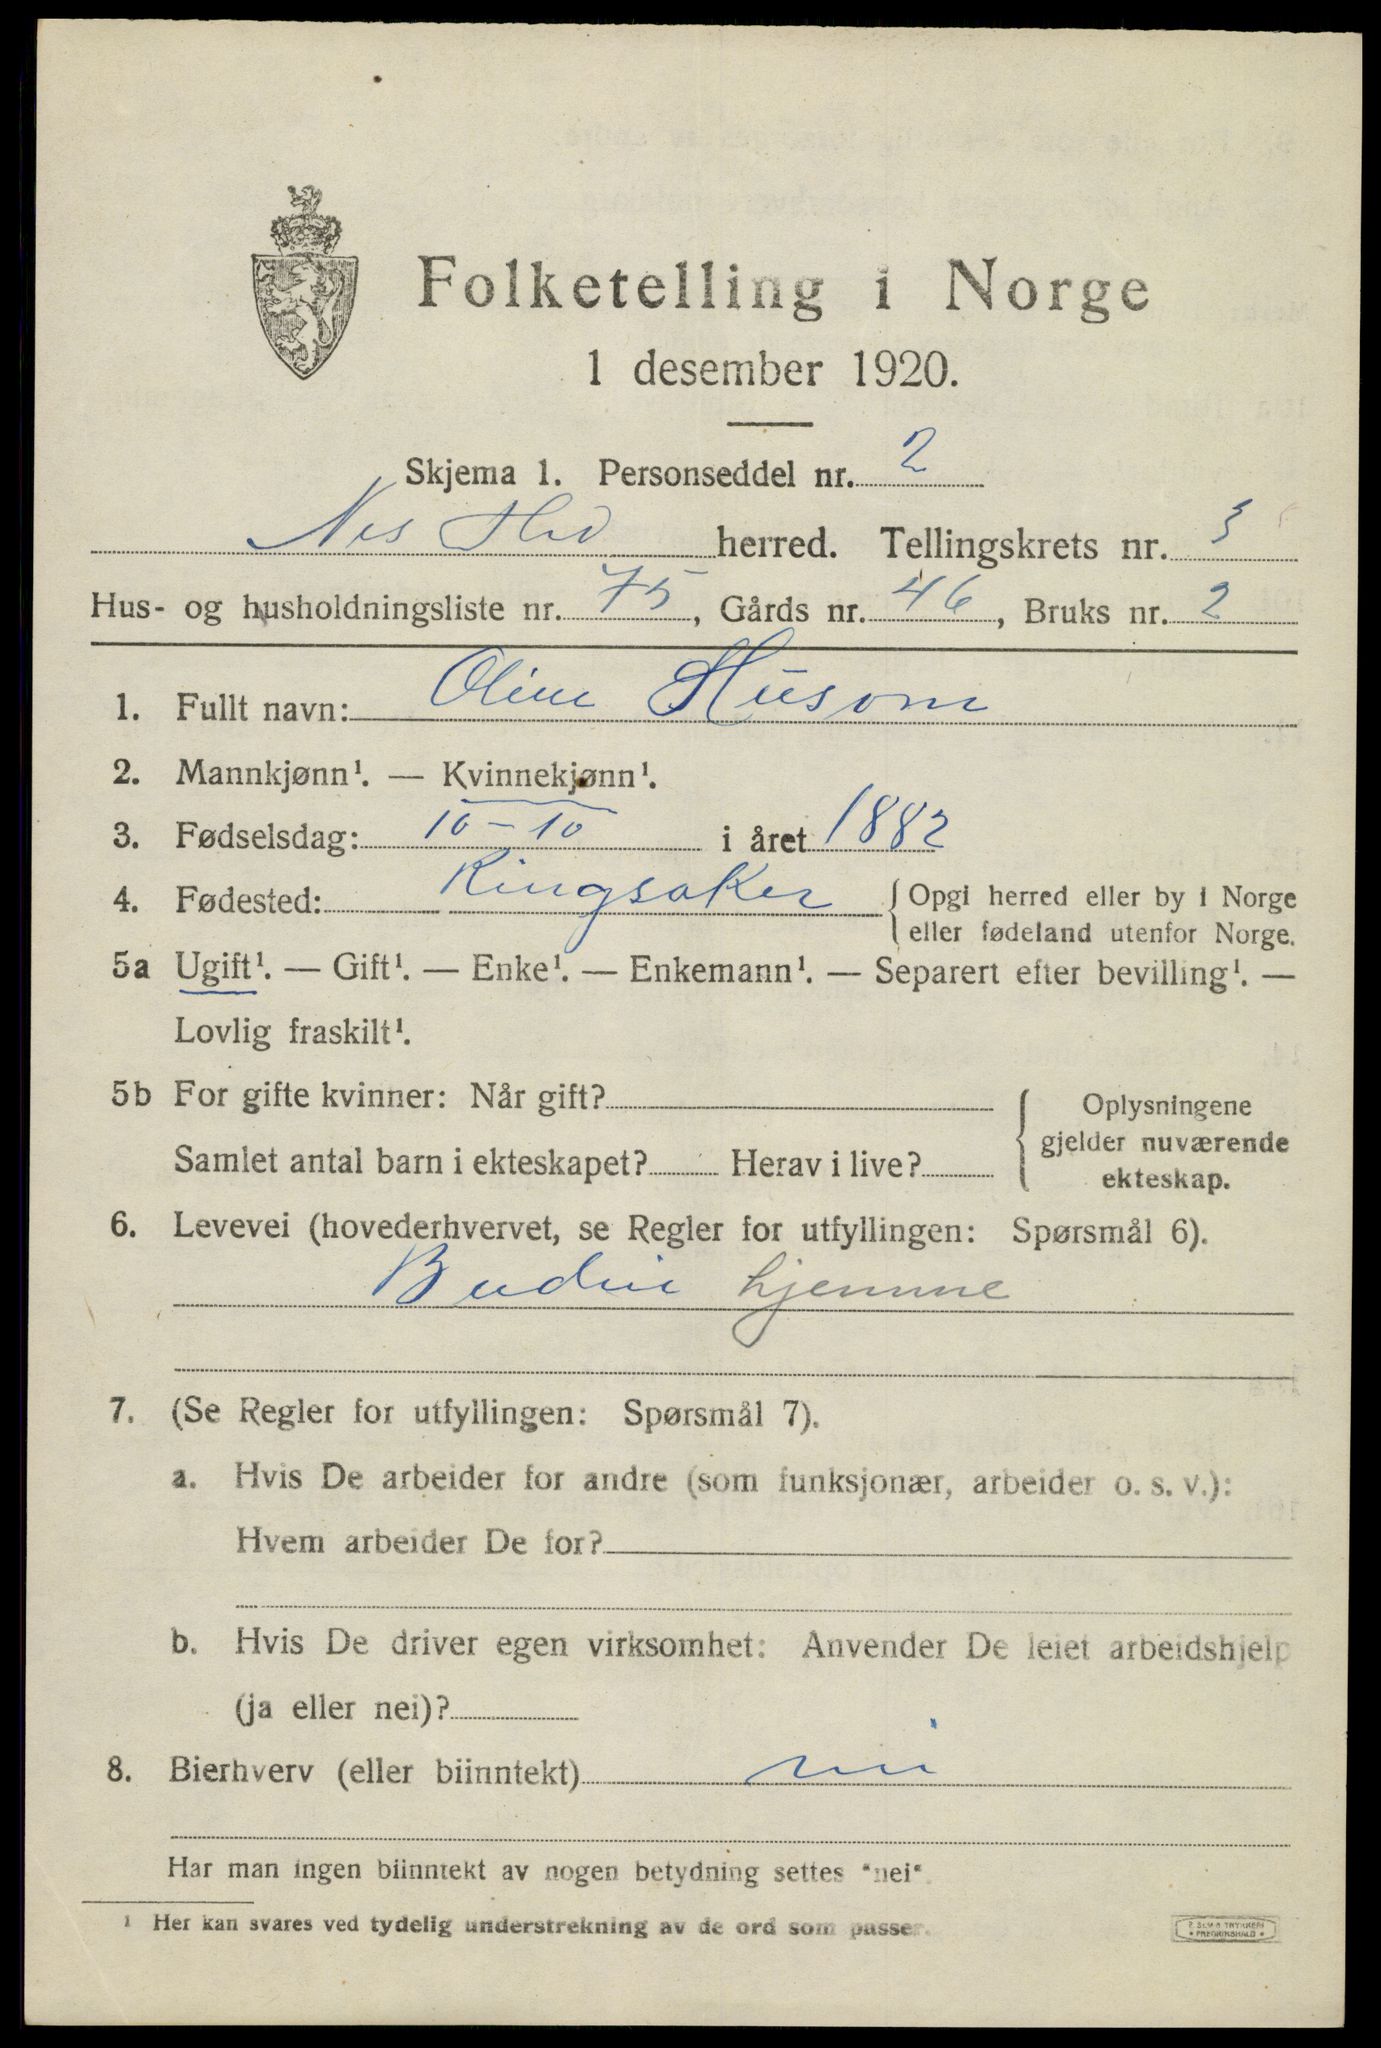 Folketelling i Norge
1 desember 1920.
Skjema 1. Personseddel nr. 2
Nes Hed herred. Tellingskrets nr. 3
Hus- og husholdningsliste nr. 75, Gårds nr. 46, Bruks nr. 2
1. Fullt navn: Oline Husom
2. Mannkjønn¹. — Kvinnekjønn¹.
3. Fødselsdag: 10-10 i året 1882
4. Fødested: Ringsaker { Opgi herred eller by i Norge
eller fødeland utenfor Norge.
5a Ugift¹. — Gift¹. — Enke¹. — Enkemann¹. — Separert efter bevilling¹. —
Lovlig fraskilt¹.
5b For gifte kvinner: Når gift?
Samlet antal barn i ekteskapet? Herav i live?
{ Oplysningene
gjelder nuværende
ekteskap.
6. Levevei (hovederhvervet, se Regler for utfyllingen: Spørsmål 6).
Budeie hjemme
7. (Se Regler for utfyllingen: Spørsmål 7).
a. Hvis De arbeider for andre (som funksjonær, arbeider o. s. v.):
Hvem arbeider De for?
b. Hvis De driver egen virksomhet: Anvender De leiet arbeidshjelp
(ja eller nei)?
8. Bierhverv (eller biinntekt) nei
Har man ingen biinntekt av nogen betydning settes "nei".
¹ Her kan svares ved tydelig understrekning av de ord som passer.